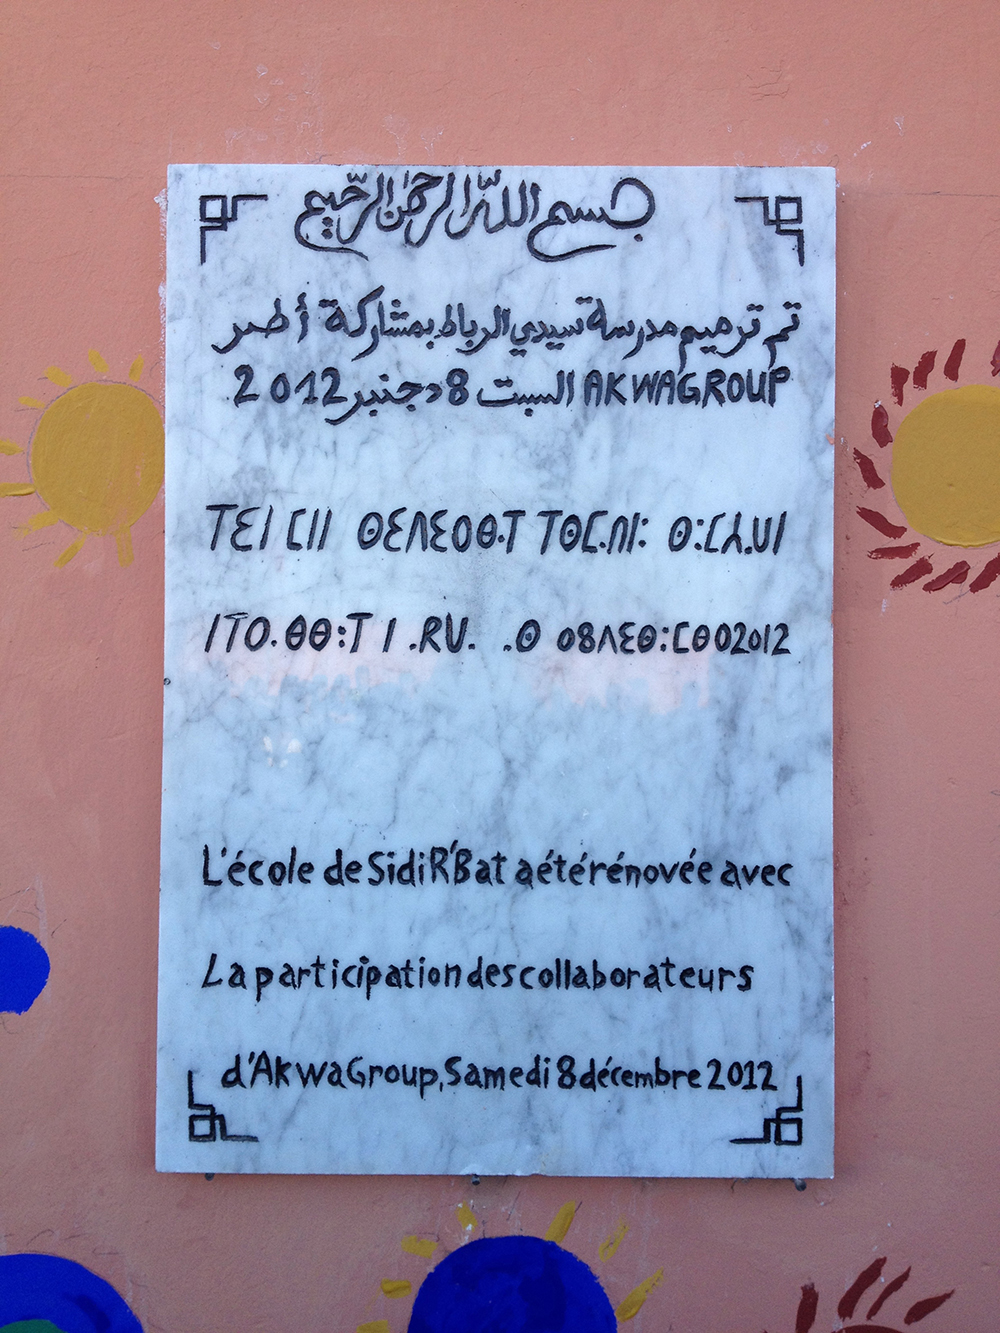 بسم الله الرحمن الرحيم
تم ترميم مدرسة سيدي الرباط بمشاركة أطر
AKWAGROUP السبت 8 دجنبر 2012
ⵜⵉⵏ ⵎⵍⵍ ⵙⵉⴷⵉⵔⴱⴰⵜ ⵜⵙⵎⴰⵍⵏⵓ ⵙⵓⵎⵢⴰⵡⵏ
ⵏⵜⵔⴰⴱⴱⵓⵜ ⵏ ⴰⴽⵡⴰ ⴰⵙ 08ⴷⵉⵙⵓⵎⴱⵔ2012
L'école de Sidi R'Bat a été rénovée avec
La participation des collaborateurs
d'AkwaGroup, Samedi 8 décembre 2012